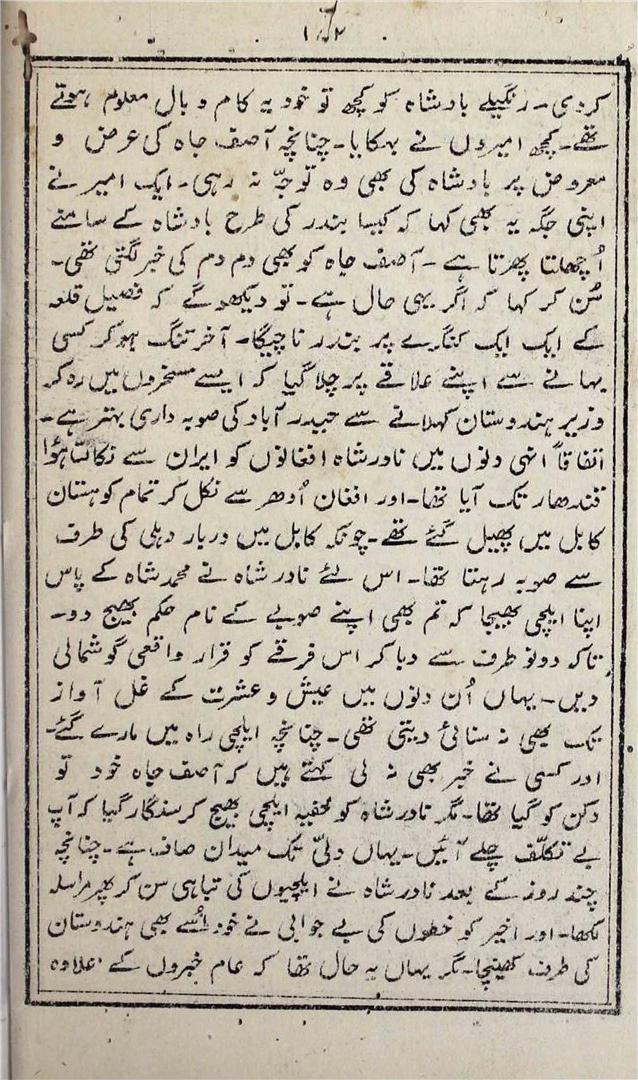 ۱۴۲
کر دی۔ رنگیلے بادشاہ کو کچھ تو خود یہ کام وبال معلوم ہوتے
تھے۔ کچھ امیروں نے بہکایا۔ چنانچہ آصف جاہ کی عرض و
معروض پر بادشاہ کی بھی وہ توجہّ نہ رہی۔ ایک امیر نے
اپنی جگہ یہ بھی کہا کہ کیسا بندر کی طرح بادشاہ کے سامنے
اُچھلتا پھرتا ہے۔ آصف جاہ کو بھی دم دم کی خبر لگتی تھی۔
سُن کر کہا کہ اگر یہی حال ہے۔ تو دیکھو گے کہ فصیل قلعہ
کے ایک ایک کنگرے پر بندر ناچیگا۔ آخر تنگ ہو کر کسی
بہانے سے اپنے علاقے پر چلا گیا کہ ایسے مسخروں میں رہ کر
وزیر ہندوستان کہلانے سے حیدر آباد کی صوبہ داری بہتر ہے۔
اتفاقاً انہی دنوں میں نادر شاہ افغانوں کو ایران سے نکالتا ہؤا
قندھار تک آیا تھا۔ اور افغان اُدھر سے نکل کر تمام کوہستان
کابل میں پھیل گئے تھے۔ چونکہ کابل میں دربار دہلی کی طرف
سے صوبہ رہتا تھا۔ اس لئے نادر شاہ نے محمد شاہ کے پاس
اپنا ایلچی بھیجا کہ تم بھی اپنے صوبے کے نام حکم بھیج دو۔
تاکہ دونو طرف سے دبا کر اس فرقے کو قرار واقعی گوشمالی
دیں۔ یہاں اُن دنوں میں عیش و عشرت کے غل آواز
تک بھی نہ سنائی دیتی تھی۔ چنانچہ ایلچی راہ میں مارے گئے۔
اور کسی نے خبر بھی نہ لی کہتے ہیں کہ آصف جاہ خود تو
دکن کو گیا تھا۔ مگر نادر شاہ کو خفیہ ایلچی بھیج کر سنگار گیا کہ آپ
بے تکلّف چلے آئیں۔ یہاں دلّی تک میدان صاف ہے۔ چنانچہ
چند روز کے بعد نادر شاہ نے ایلچیوں کی تباہی سن کر پھر مراسلہ
لکھا۔ اور اخیر کو خطوں کی بے جوابی نے خود اُسے بھی ہندوستان
کی طرف کھینچا۔ مگر یہاں یہ حال تھا کہ عام خبروں کے علاوہ